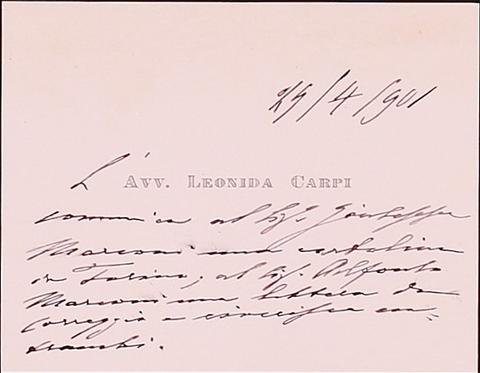 29/4/901
L'
AVV. LEONIDA CARPI
comunica al Sig. Giuseppe
Marconi una cartolina
da Torino; al Sig. Alfonso
Marconi una lettera da
Correggio e riverisce en-
trambi.